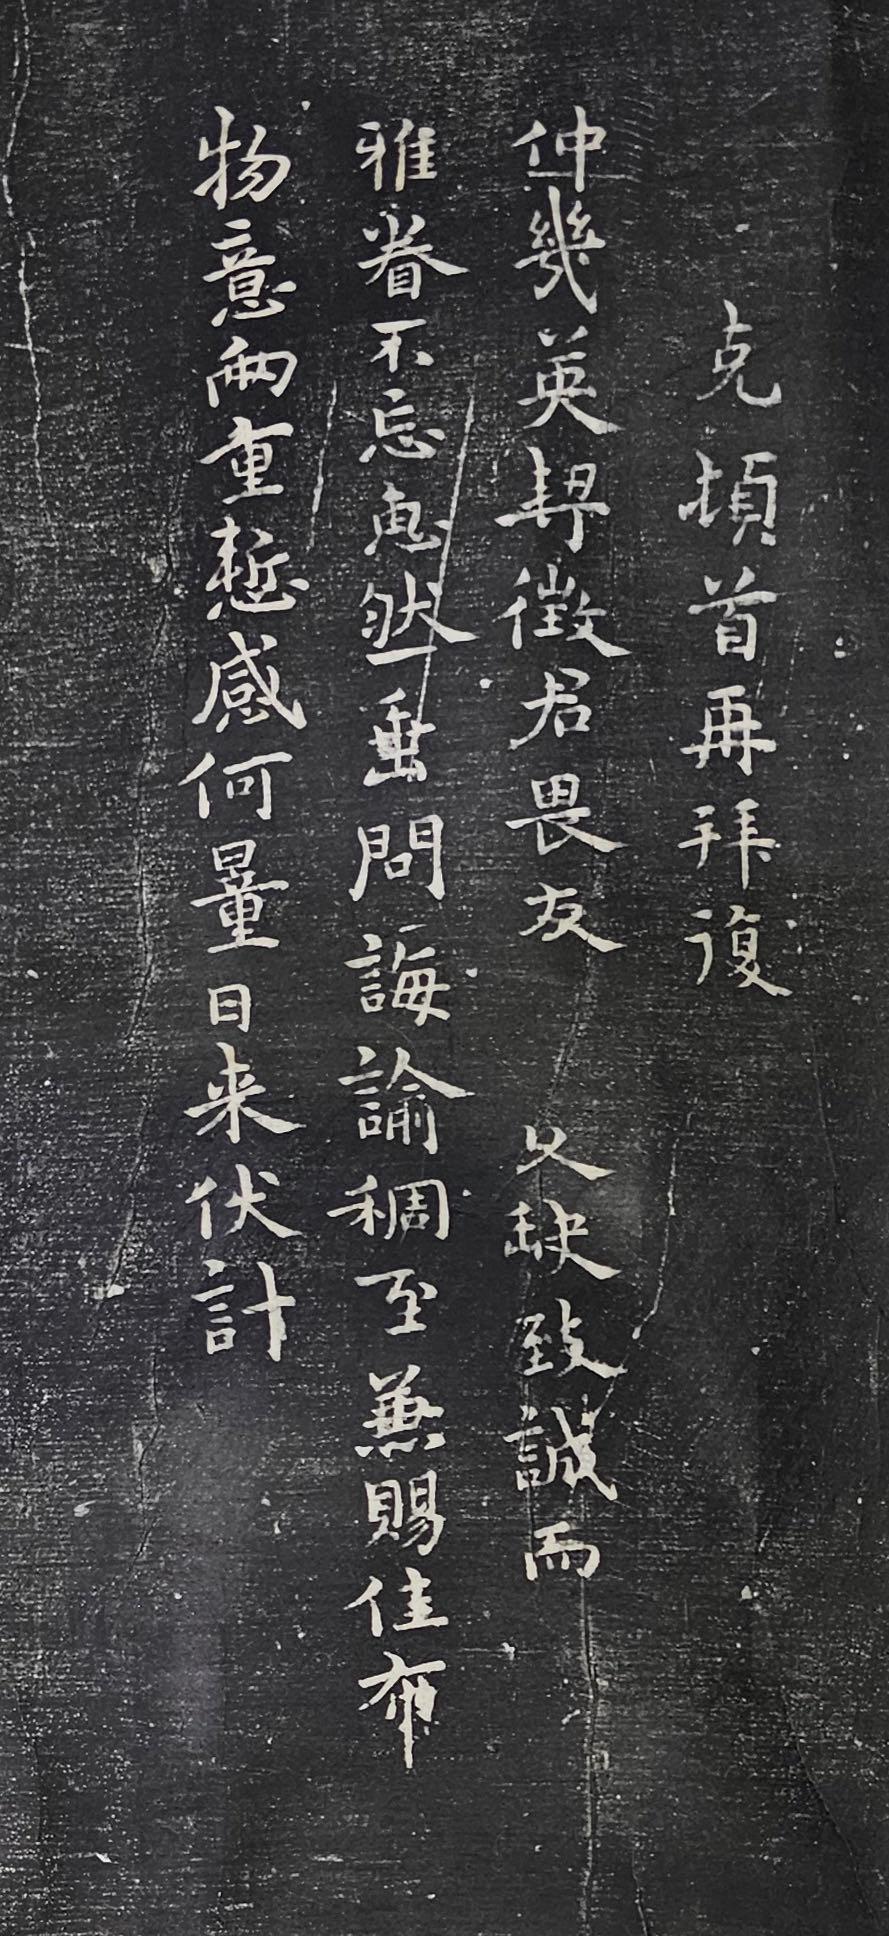 克頓首再拜復
仲幾英契徵君畏友 久缺致誠而
雅眷不忘惠然垂問誨諭稠至兼賜佳布
物意兩重慙感何量日来伏計